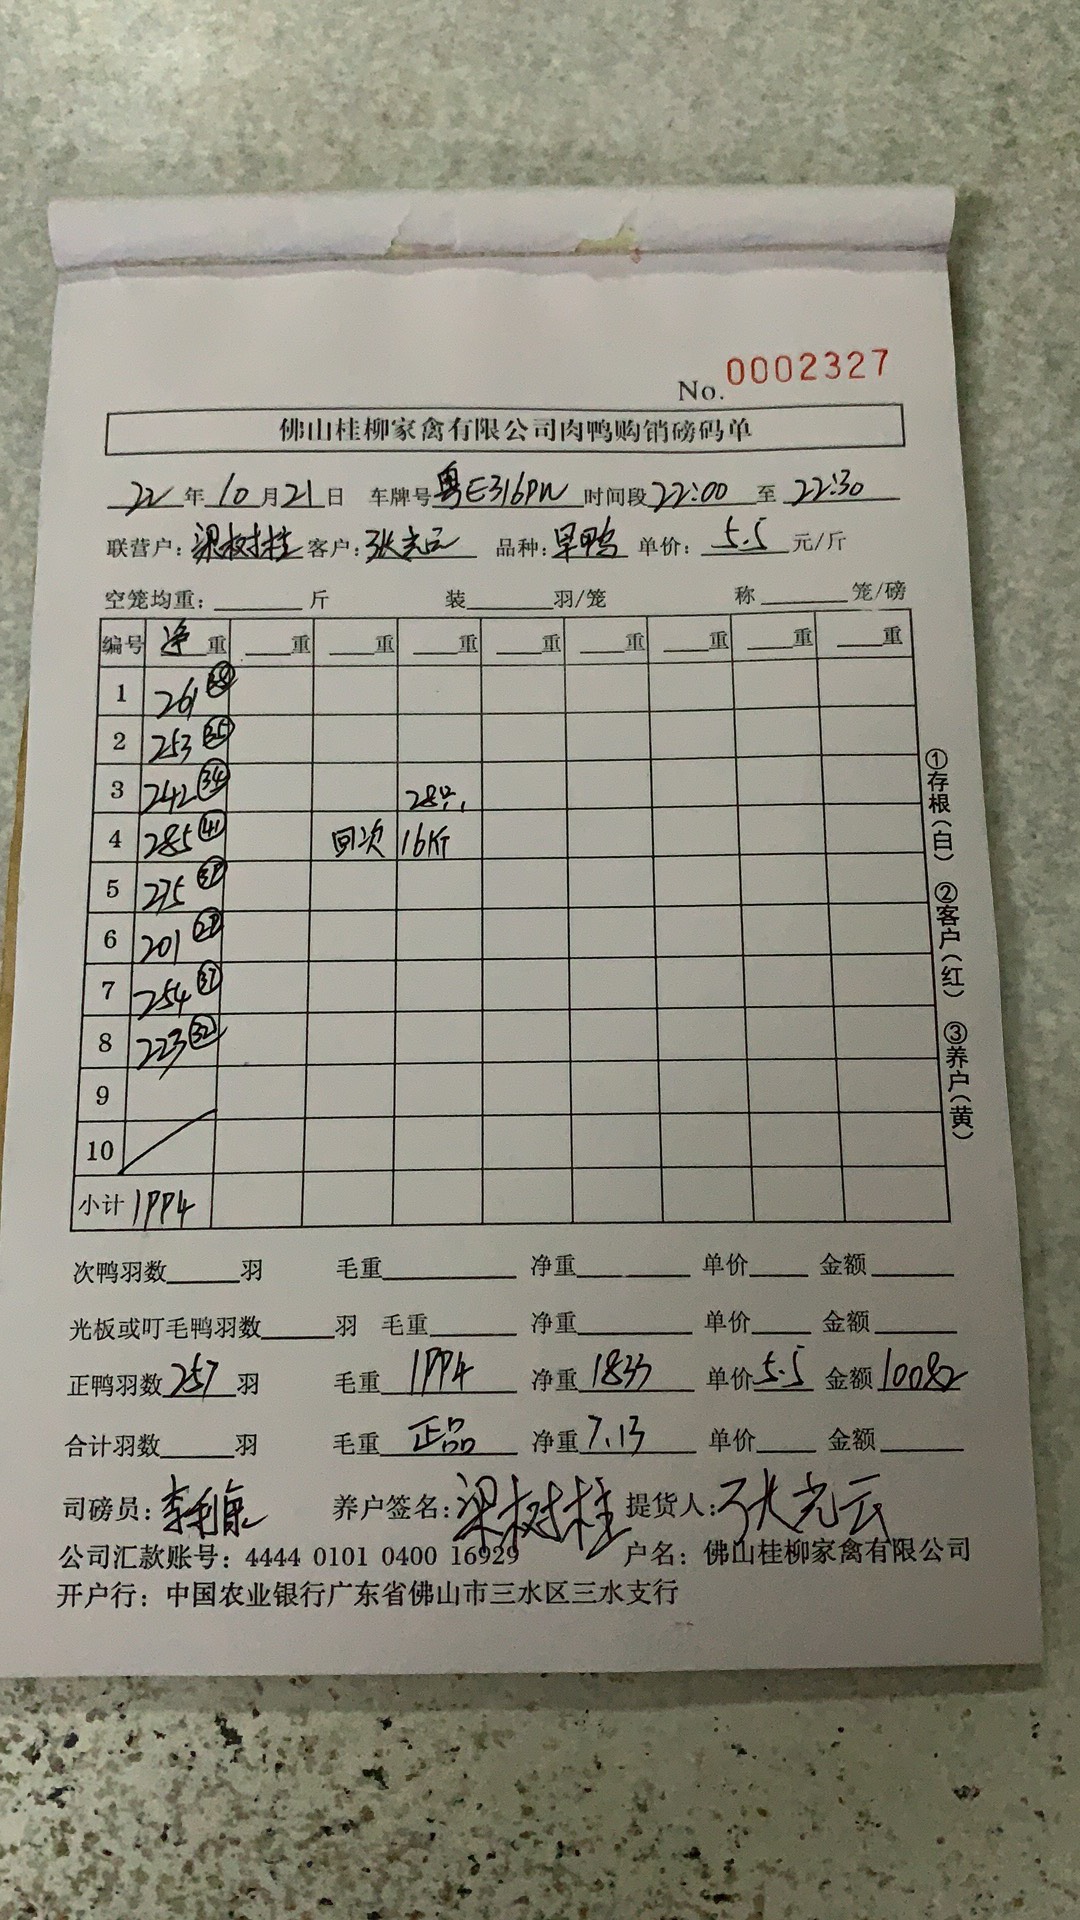 No. 0002327
佛山桂柳家禽有限公司肉鸭购销磅码单
22 年 10 月 21 日 车牌号 粤E316PW 时间段 22:00 至 22:30
联营户: 梁树桂 客户: 张光云 品种: 旱鸭 单价: 5.5 元/斤
空笼均重: 斤 装 羽/笼 称 笼/磅
编号 净重 重 重 重 重 重 重 重 重
1 261
2 253 35
3 242 34 28只
4 285 41 回次 16斤
5 275
6 201
7 254 37
8 223 32
9
10
小计 1994
次鸭羽数 羽 毛重 净重 单价 金额
光板或叮毛鸭羽数 羽 毛重 净重 单价 金额
正鸭羽数 257 羽 毛重 1994 净重 1833 单价 5.5 金额 10082
合计羽数 羽 毛重 正品 净重 7.13 单价 金额
司磅员: 养户签名: 梁树桂 提货人: 张光云
公司汇款账号: 4444 0101 0400 16929 户名: 佛山桂柳家禽有限公司
开户行: 中国农业银行广东省佛山市三水区三水支行
①存根(白) ②客户(红) ③养户(黄)